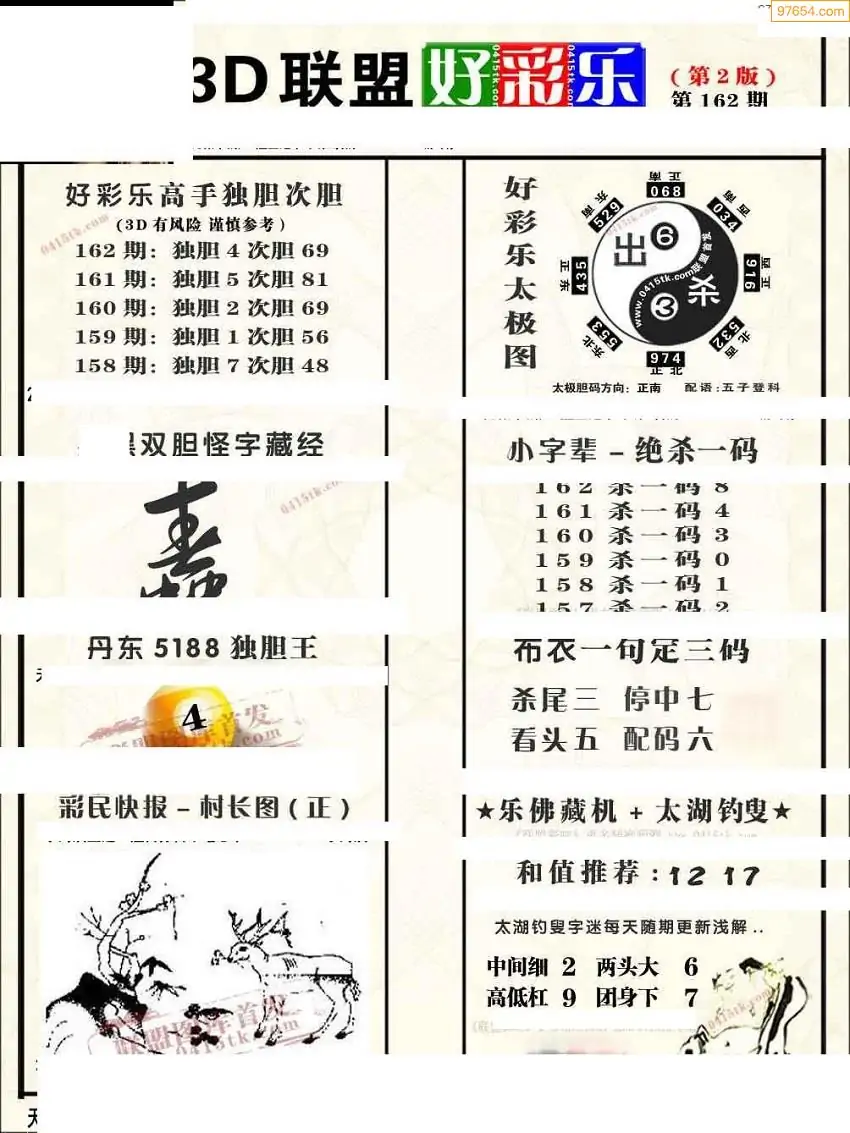 97654.com
3D 联盟 好彩乐
(第2版)
第162期
好彩乐高手独胆次胆
(3D有风险 谨慎参考)
162期: 独胆4次胆69
161期: 独胆5次胆81
160期: 独胆2次胆69
159期: 独胆1次胆56
158期: 独胆7次胆48
好彩乐太极图
正南 068
西南 034
正西 916
西北 532
正北 974
东北 553
正东 435
东南 529
出 6
杀 3
www.0415tk.com联盟首发
太极胆码方向: 正南 配语:五子登科
双胆怪字藏经
小字辈-绝杀一码
162杀一码8
161杀一码4
160杀一码3
159杀一码0
158杀一码1
157杀一码2
丹东5188独胆王
4
布衣一句定三码
杀尾三 停中七
看头五 配码六
彩民快报-村长图(正)
★乐佛藏机+太湖钓叟★
和值推荐:12 17
太湖钓叟字迷每天随期更新浅解..
中间细 2 两头大 6
高低杠 9 团身下 7
联盟图库首发
0415tk.com